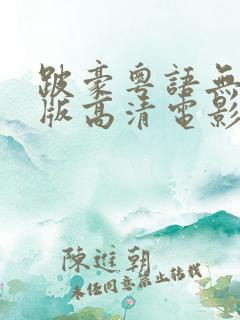 跛豪粵語無
版高清電影
陳進朝
未经同意禁止转载